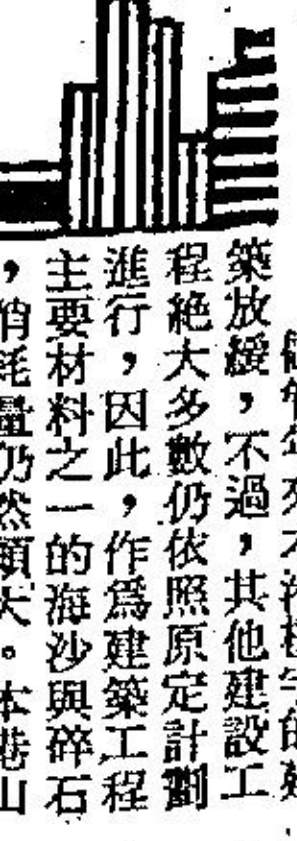 築放緩，不過，其他建設工
程絶大多數仍依照原定計劃
進行，因此，作爲建築工程
主要材料之一的海沙與碎石
，消耗量仍然頗大。本港山